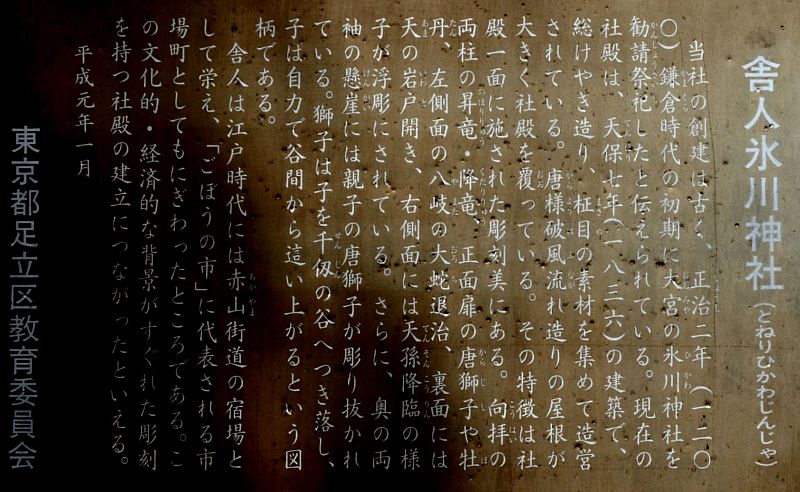 舎人氷川神社(とねりひかわじんじゃ)
当社の創建は古く、正治二年(一二〇
〇)鎌倉時代の初期に大宮の氷川神社を
勧請祭祀したと伝えられている。現在の
社殿は、天保七年(一八三六)の建築で、
総けやき造り、柾目の素材を集めて造営
されている。唐様破風流れ造りの屋根が
大きく社殿を覆っている。その特徴は社
殿一面に施された彫刻美にある。向拝の
両柱の昇竜・降竜、正面扉の唐獅子や牡
丹、左側面の八岐の大蛇退治、裏面には
天の岩戸開き、右側面には天孫降臨の様
子が浮彫にされている。さらに、奥の両
袖の懸崖には親子の唐獅子が彫り抜かれ
ている。獅子は子を千仭の谷へつき落し、
子は自力で谷間から這い上がるという図
柄である。
舎人は江戸時代には赤山街道の宿場と
して栄え、「ごぼうの市」に代表される市
場町としてもにぎわったところである。こ
の文化的・経済的な背景がすぐれた彫刻
を持つ社殿の建立につながったといえる。
平成元年一月
東京都足立区教育委員会